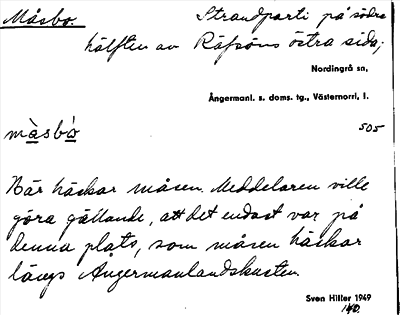 Måsbo. Strandparti på södra
hälften av Räfsöns östra sida;
Nordingrå sn,
Ångermanl. s. doms. tg., Västernorrl, l.
màsbò 505
Här häckar måsen. Meddelaren ville
göra gällande, att det endast var på
denna plats, som måsen häckar
längs Ångermanlandskusten.
Sven Hiller 1949